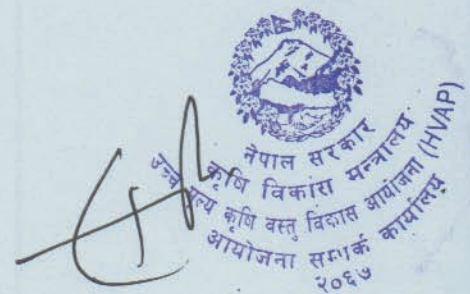 नेपाल सरकार
कृषि विकास मन्त्रालय
उच्च मूल्य कृषि वस्तु विकास आयोजना (HVAP)
आयोजना सम्पर्क कार्यालय
२०६७